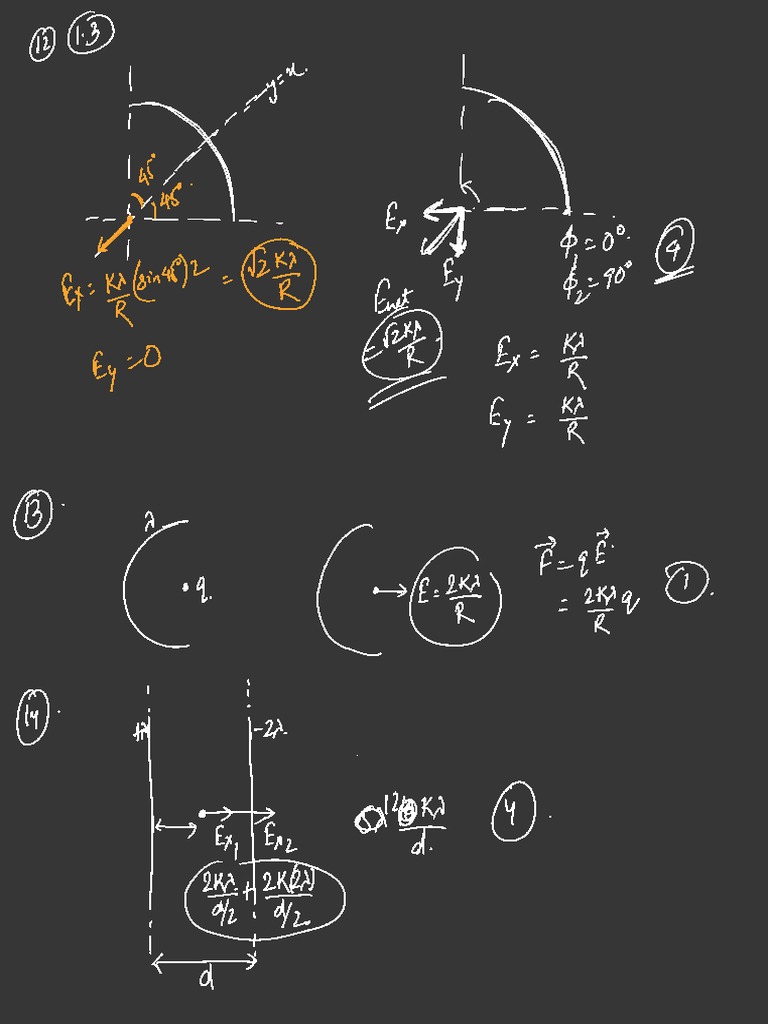 12 1.3
y=x
45°
45°
Ex = Kλ/R (sin45°)2 = √2Kλ/R
Ey=0
Ex
Ey
Enet
= √2Kλ/R
ϕ=0°
ϕ2=90°
4
Ex = Kλ/R
Ey = Kλ/R
13.
λ
q.
E=2Kλ/R
F⃗=qE⃗.
= 2Kλ/R q
1.
14.
+λ
-2λ
Ex1 Ex2
2Kλ/d/2 + 2K(2λ)/d/2.
12Kλ/d.
4.
d